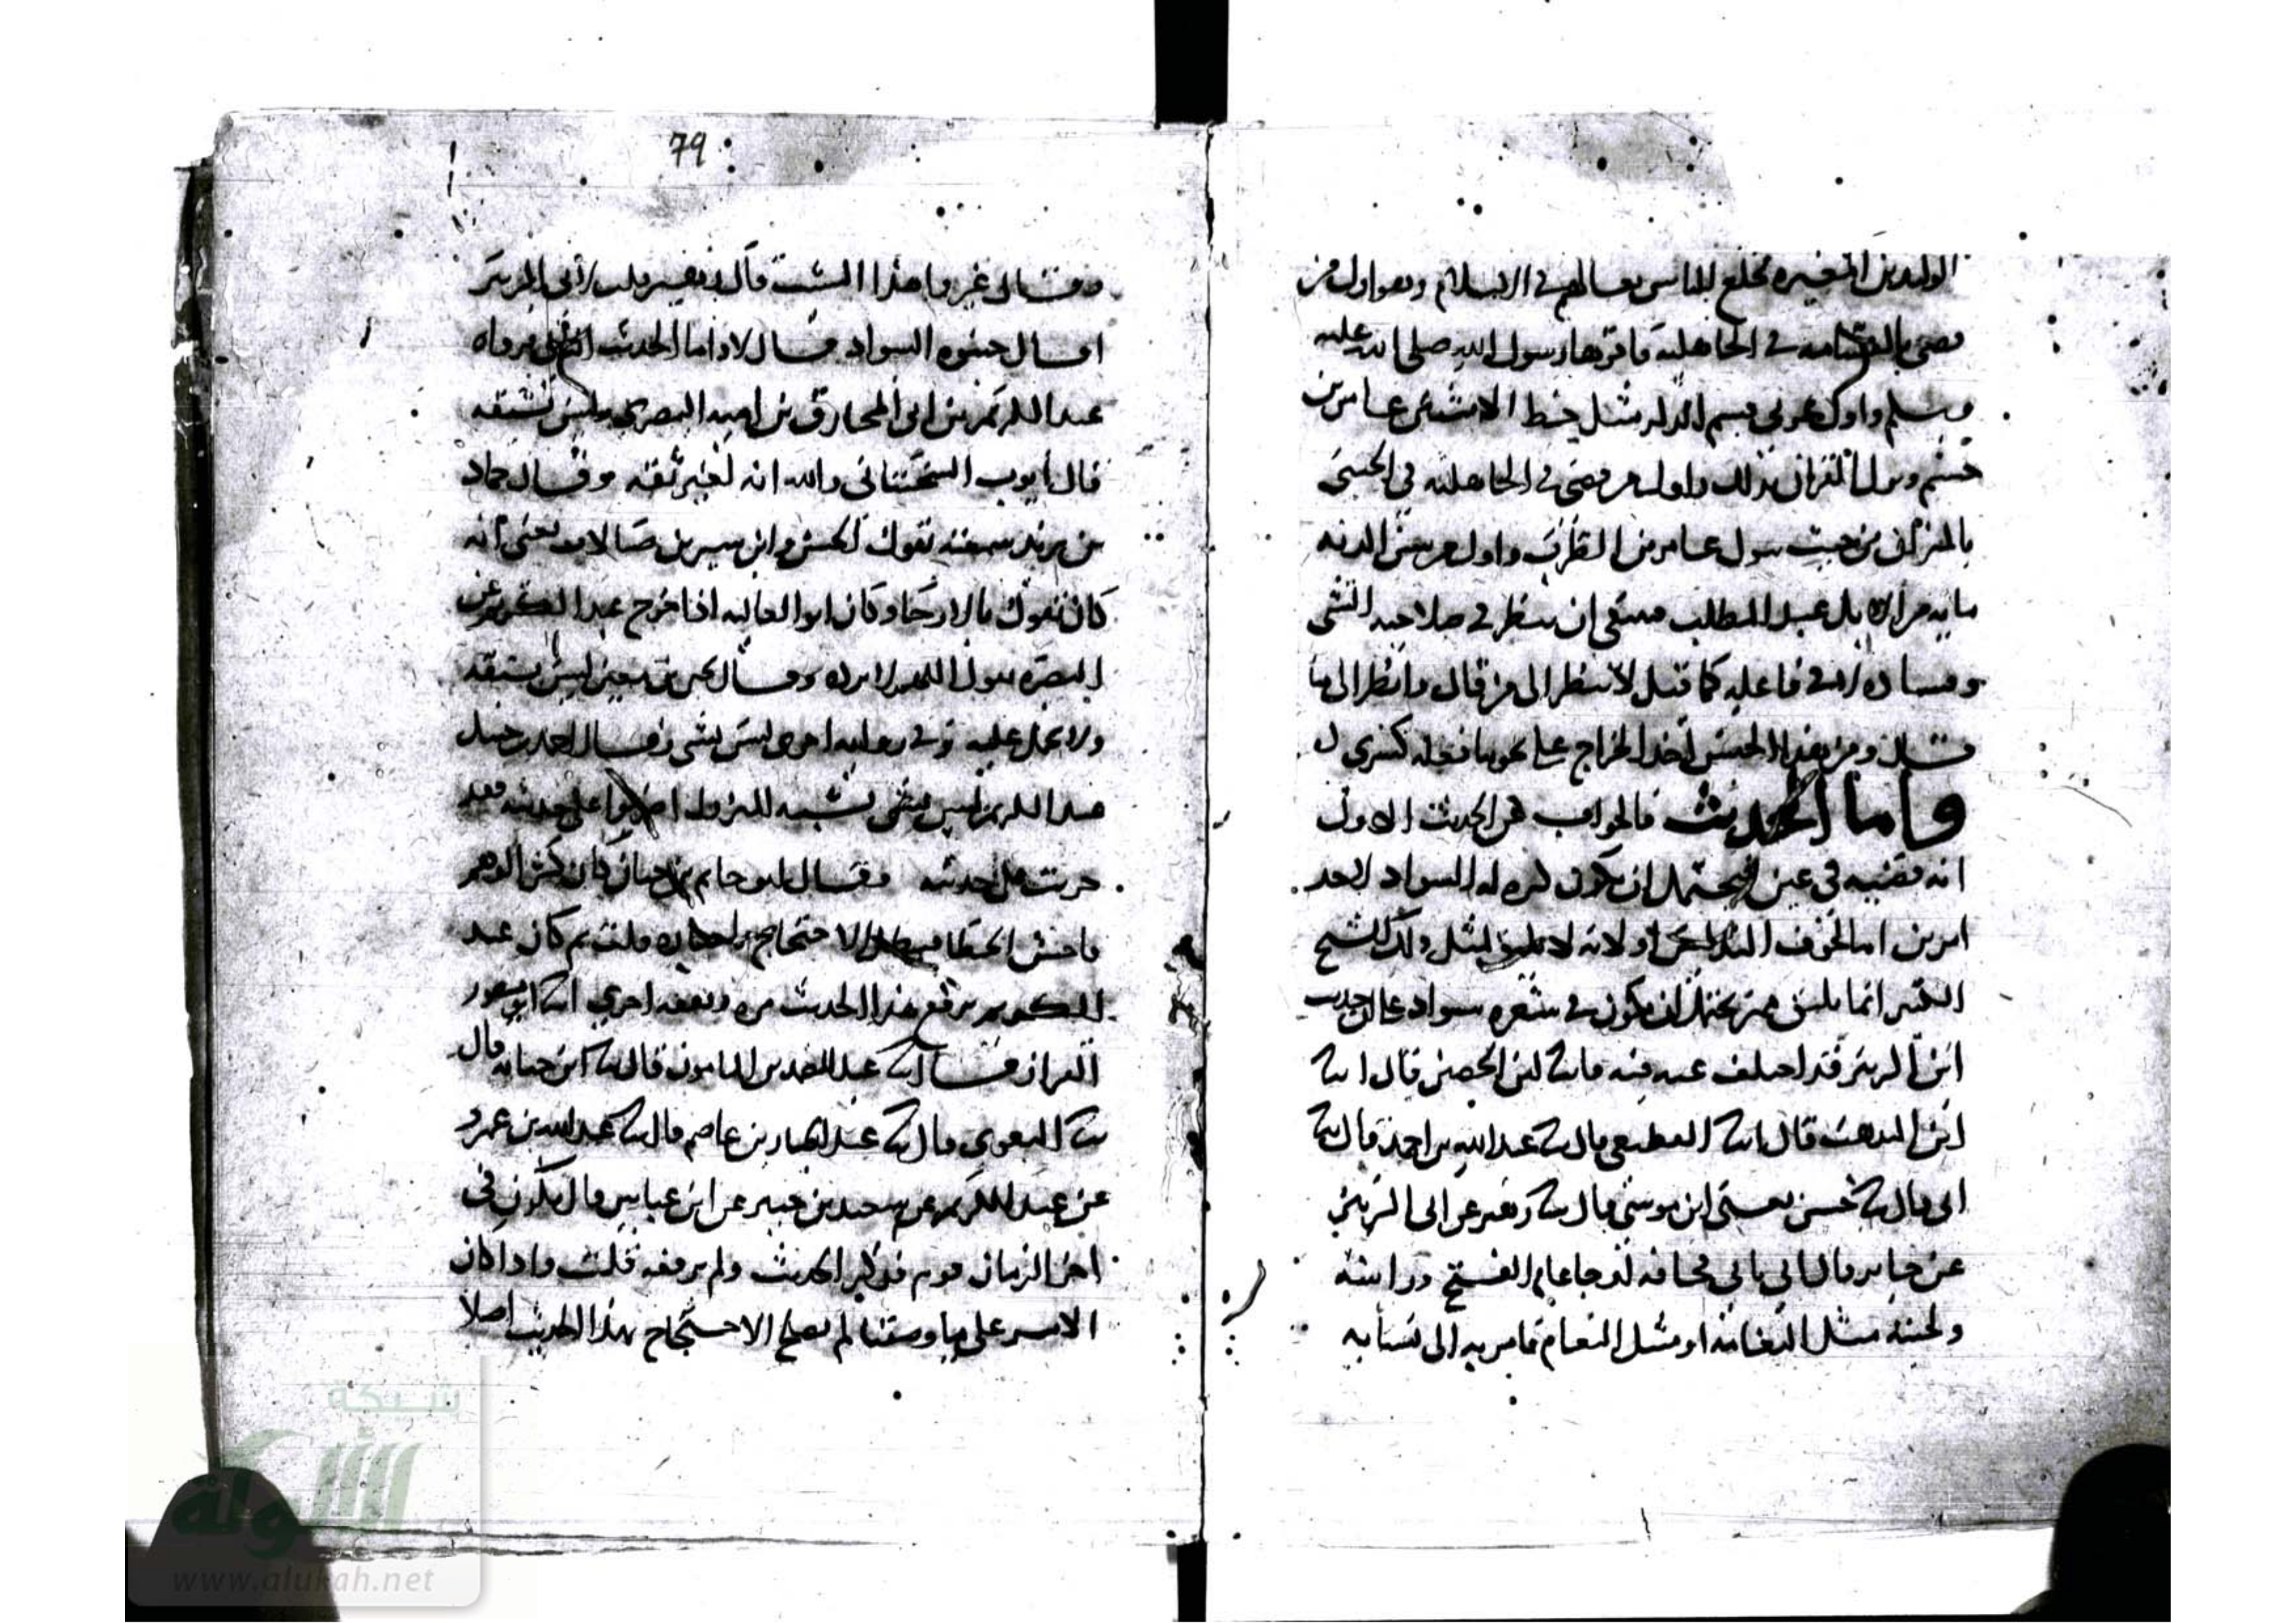 الوليد بن المغيره فخلع الناس نعالهم في الاسلام وهو اول من
قضى بالقسامه في الجاهليه فاقرها رسول الله صلى الله عليه
وسلم واول من قسم للذكر مثل حظ الانثيين عامر بن
جشم ونزل القران بذلك واول من قضى في الجاهليه في الخنثى
بالميراث من حيث يبول عامر بن الظرب واول من سن الديه
مايه من الابل عبد المطلب فينبغي ان ينظر في صلاحيه الشي
وفساده لا في فاعليه كما قيل لا تنظر الى من قال وانظر الى ما
قال ومن هذا الجنس اخذ الخراج على نحو ما فعله كسرى
واما الحديث فالجواب عن الحديث الاول
انه قضيه في عين فيحتمل ان يكون كره له السواد لاحد
امرين اما لخوف التدليس او لانه لا يليق لمثل ذلك الشيخ
الكبير انما يليق بمن يحتمل ان يكون في شعره سواد على ان حديث
ابن الزبير قد اختلف عنه فيه فانبا ابن الحصين قال انبا
ابن المذهب قال انبا القطيعي قال ثنا عبد الله بن احمد قال ثنا
ابي قال ثنا حسن يعني ابن موسى قال ثنا زهير عن ابي الزبير
عن جابر قال اتي بابي قحافه او جا عام الفتح وراسه
ولحيته مثل الثغامه او مثل الثغام فامر به الى نسايه
79
وقال غيروا هذا الشيب قال زهير قلت لابي الزبير
اقال جنبوه السواد قال لا واما الحديث الثاني فرواه
عبد الكريم بن ابي المخارق بن اميه البصري وليس بثقه
قال ايوب السختياني والله انه لغير ثقه وقال حماد
بن يزيد سمعته يقول الحسن وابن سيرين ضالان يعني انه
كان يقول بالارجا وكان ابو العاليه اذا خرج عبد الكريم من
البصره يقول اللهم لا ترده وقال يحيى بن معين ليس بثقه
ولا يحمل عليه وفي روايه اخرى ليس بشي وقال احمد بن حنبل
عبد الكريم ليس بشي شبه المتروك اضربوا على حديثه فقد
ضربت على حديثه وقال ابو حاتم بن حبان كان كثير الوهم
فاحش الخطا فبطل الاحتجاج باخباره قلت ثم كان عبد
الكريم يرفع هذا الحديث مره ويقفه اخرى انبا ابو منصور
القزاز قال انبا عبد الصمد بن المامون قال انبا ابن حبابه قال
ثنا البغوي قال ثنا عبد الجبار بن عاصم قال ثنا عبد الله بن عمرو
عن عبد الكريم عن سعيد بن جبير عن ابن عباس قال يكون في
اخر الزمان قوم فذكر الحديث ولم يرفعه قلت واذا كان
الامر على ما وصفنا لم يصلح الاحتجاج بهذا الحديث اصلا
شبكة
الألوكة
www.alukah.net